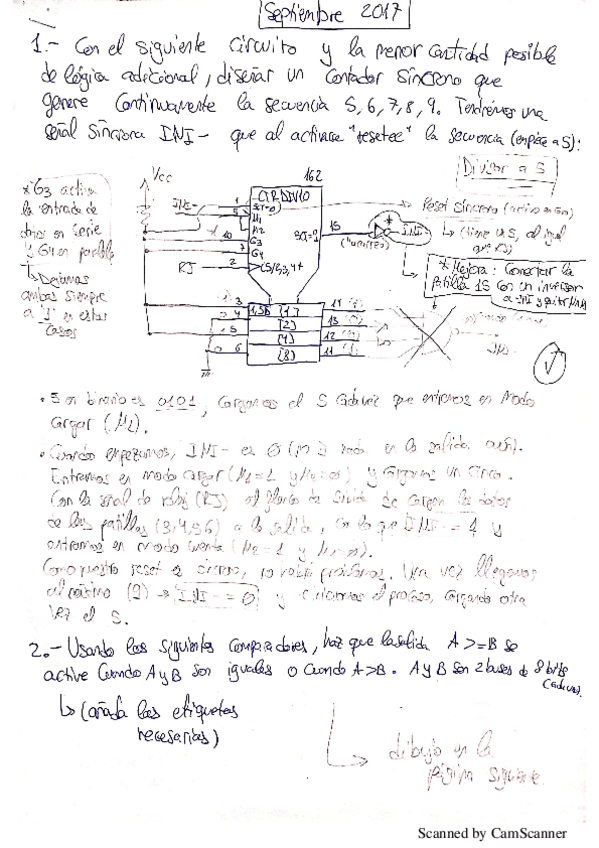 Septiembre 2017
1.- Con el siguiente circuito y la menor cantidad posible
de lógica adicional, diseñar un contador síncrono que
genere continuamente la secuencia 5, 6, 7, 8, 9. Tendremos una
señal síncrona INI- que al activarse "resetee" la secuencia (empiece a 5):
Divisor a 5
*G3 activa
la entrada de
datos en serie
y G4 en paralelo
↳ Dejamos
ambas siempre
a "1" en estos
casos
Vcc
162
CTRDIV10
INI-
M1
M2
G3
G4
RJ
C5/2,3,4+
1
10
7
2
15
INI-
Reset síncrono
↳ (tiene un 5, al igual
que RJ)
*Mejora: Conectar la
patilla 15 con un inversor
a INI
3
4
5
6
1,5D
[1]
[2]
[4]
[8]
14
13
12
11
INI-
• 5 en binario es 0101, cargamos el 5 cada vez que entremos en modo
cargar (M1).
• Cuando empezamos, INI- es 0 en la salida
Entramos en modo cargar y cargamos un cinco.
Con la señal de reloj (RJ) al flanco de subida se cargan los datos
de las patillas (3,4,5,6) a la salida, con lo que INI- = 1 y
entramos en modo cuenta
Como nuestro reset es síncrono, Una vez llegamos
al máximo (9) → INI- = 0 y el proceso, cargando otra
vez el 5.
2.- Usando los siguientes comparadores, haz que la salida A >= B se
active cuando A y B son iguales o cuando A > B. A y B son 2 buses de 8 bits
(cada uno)
↳ (añada las etiquetas
necesarias)
dibujo en la
página siguiente.
Scanned by CamScanner